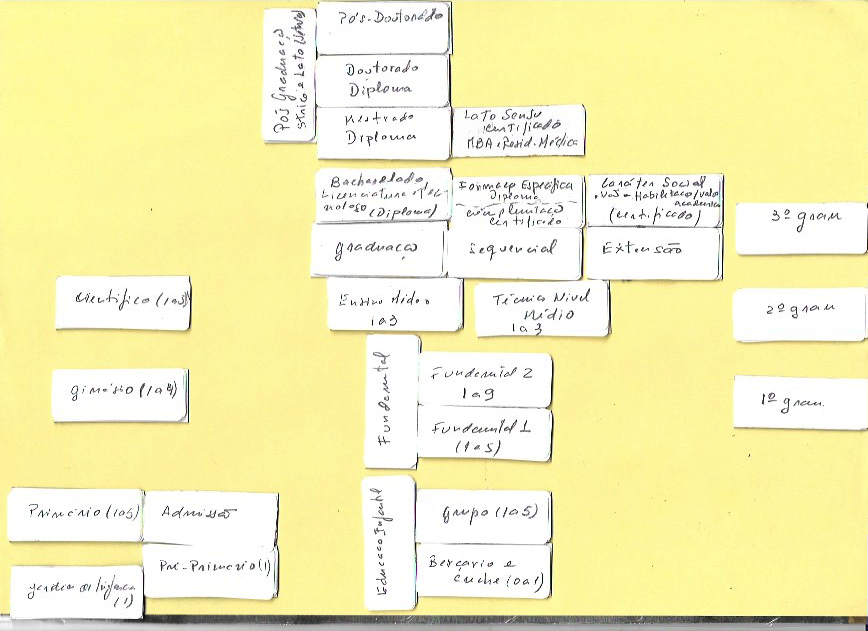 Pós Graduaçó
Strico e Lato (
Pós-Doutorado
Doutorado
Diploma
Mestrado
Diploma
Lato Sensu
certificado
MBA e Resid. Médica
Bacharelado
Licenciatura e Tec-
nologo (Diploma)
Formaçao Específica
Diploma
complementaçó
certificado
Caráter Social
(certificado)
graduaçó
Sequencial
Extensão
3º grau
científico (1a3)
Ensino Médio
1a3
Técnico Nivel
Médio
1a3
2º grau
ginásio (1a4)
Fundamental
Fundamental 2
1a9
Fundamental 1
(1a5)
1º grau
Primário (1a5)
Admissão
Pré-Primário (1)
Jardim de Infância
(1)
Educaçao Infantil
grupo (1a5)
Berçario e
creche (0a1)